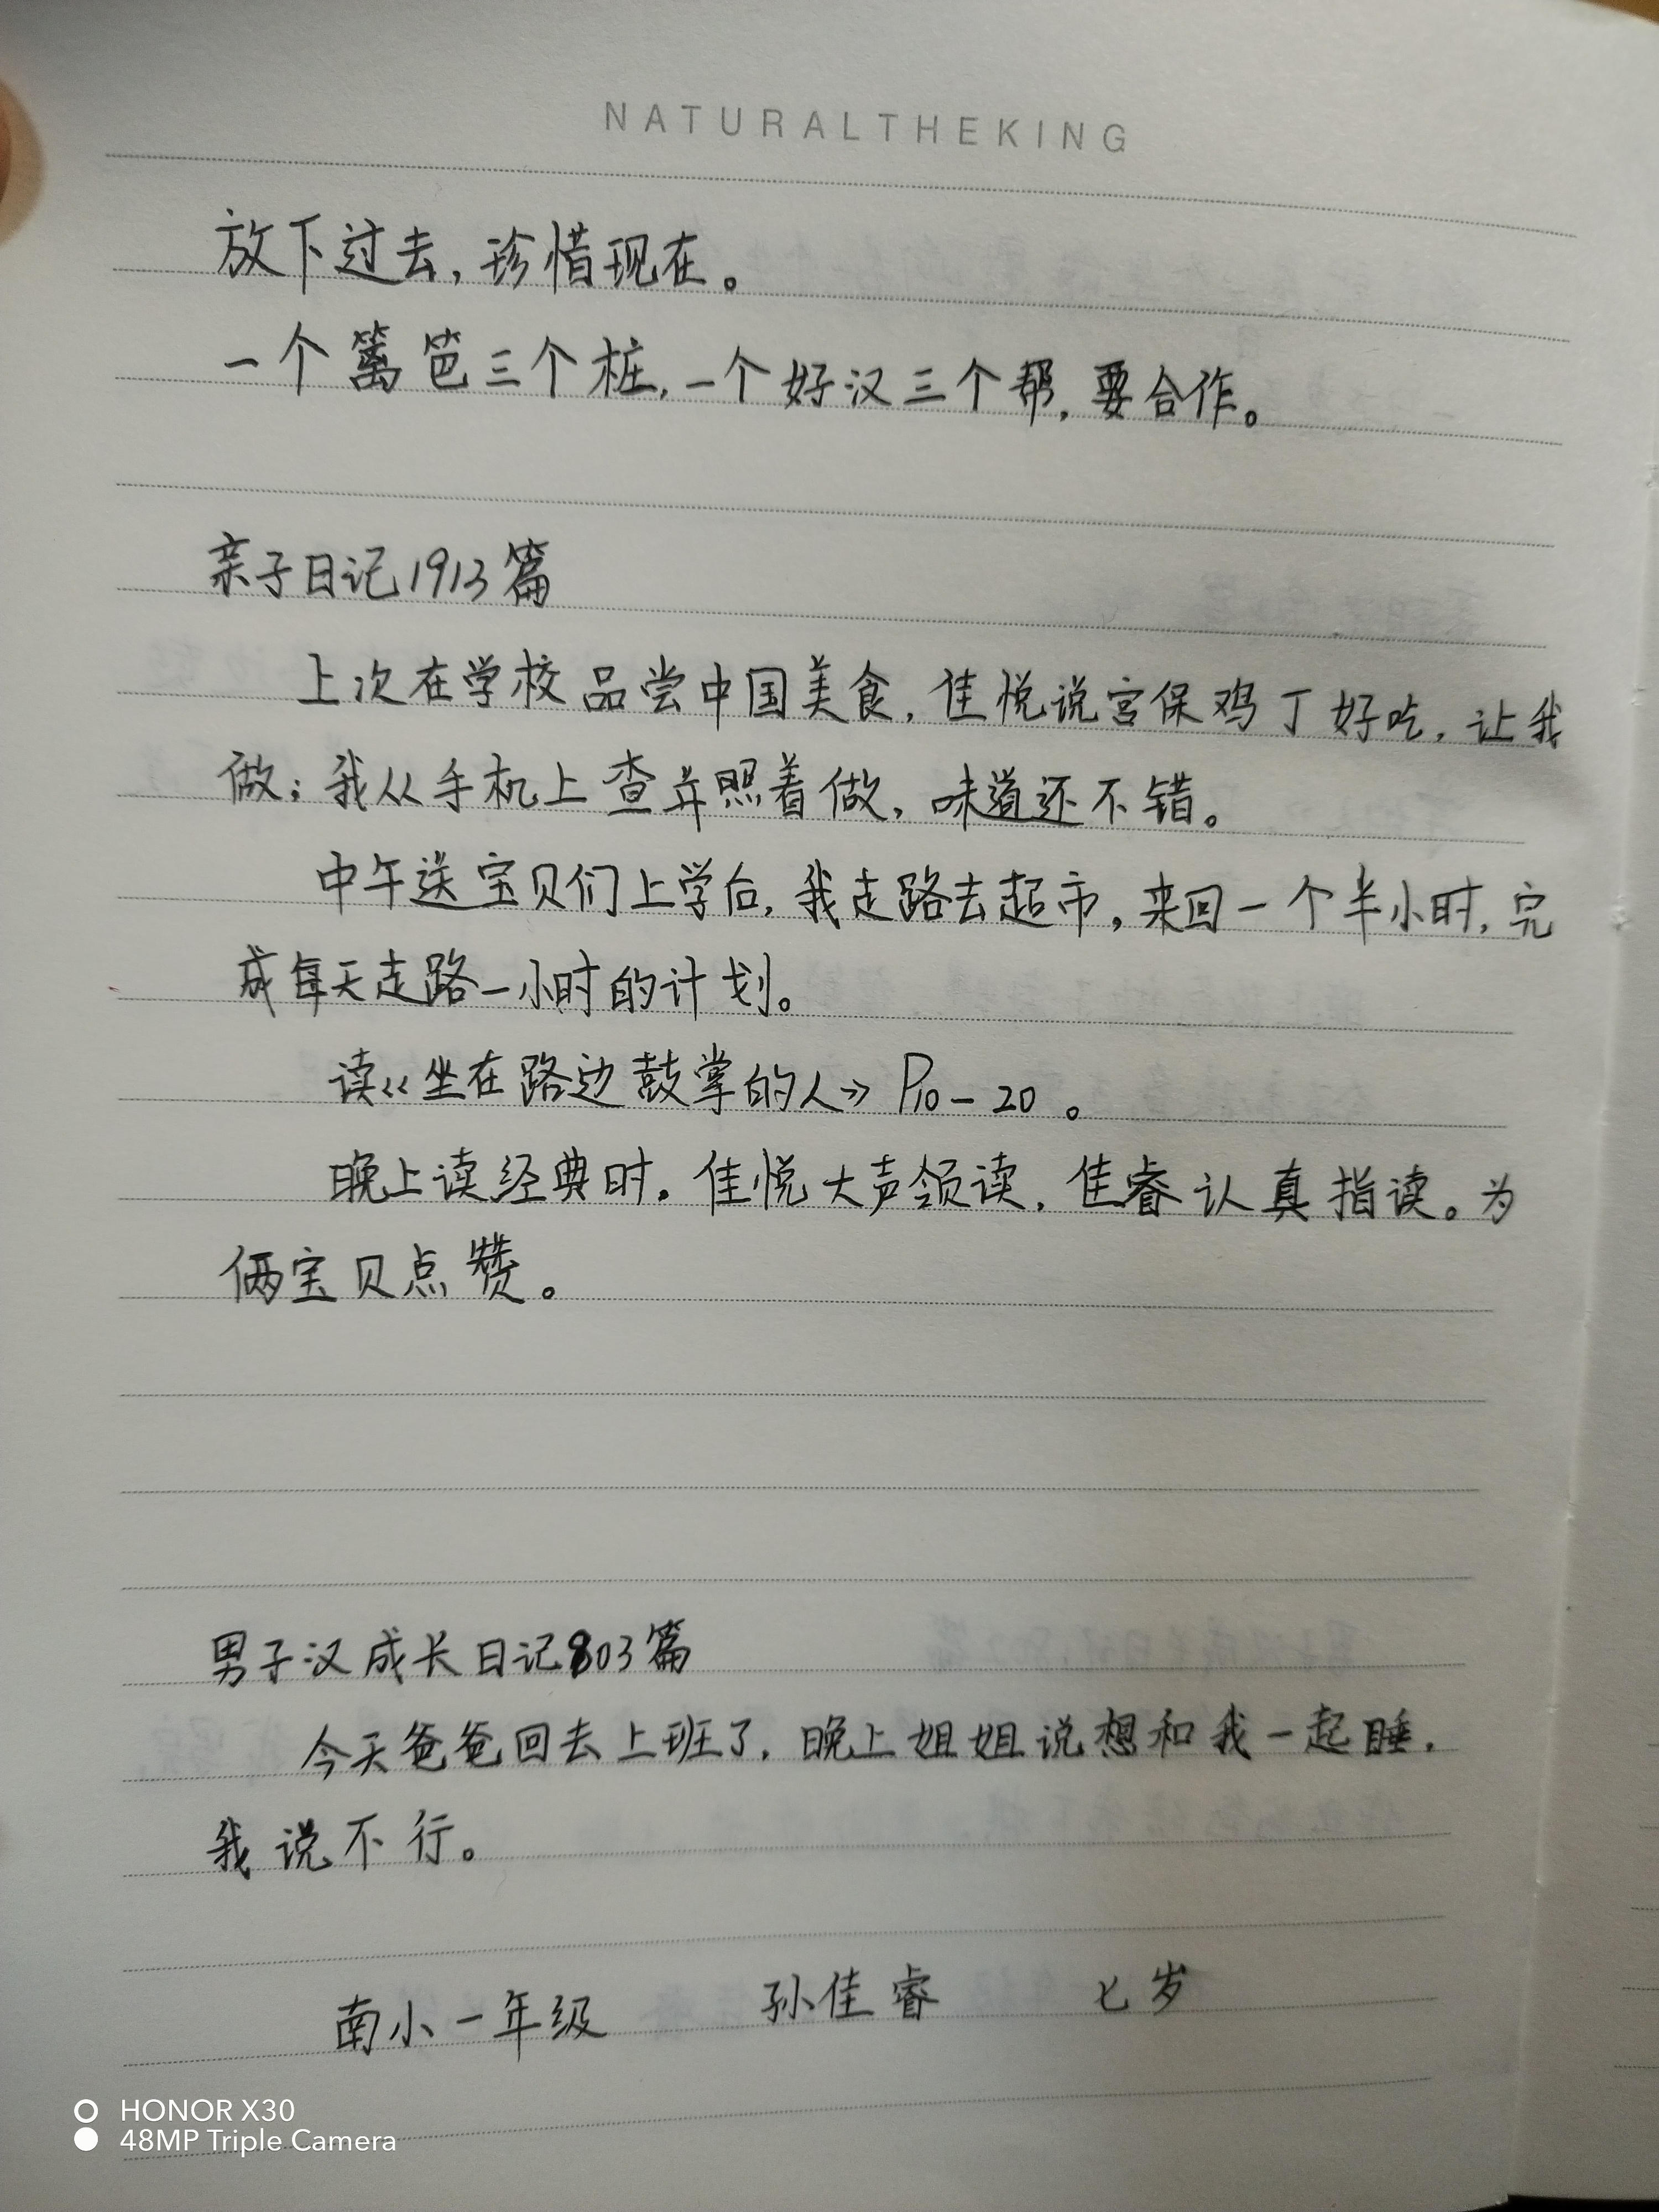 NATURALTHEKING
放下过去，珍惜现在。
一个篱笆三个桩，一个好汉三个帮，要合作。
亲子日记1913篇
上次在学校品尝中国美食，佳悦说宫保鸡丁好吃，让我
做；我从手机上查并照着做，味道还不错。
中午送宝贝们上学后，我走路去超市，来回一个半小时，完
成每天走路一小时的计划。
读《坐在路边鼓掌的人》P10-20。
晚上读经典时。佳悦大声领读，佳睿认真指读。为
俩宝贝点赞。
男子汉成长日记803篇
今天爸爸回去上班了，晚上姐姐说想和我一起睡，
我说不行。
南小一年级 孙佳睿 七岁
HONOR X30
48MP Triple Camera